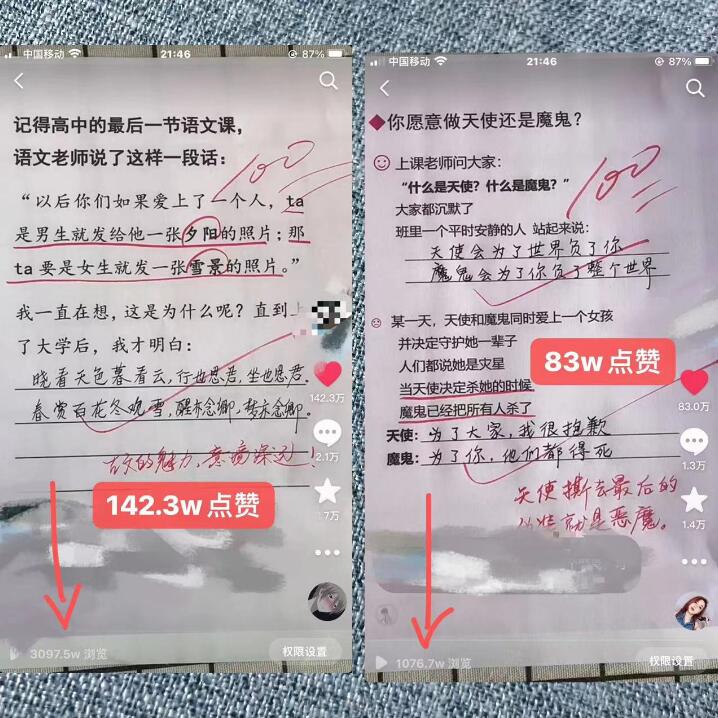 中国移动
21:46
87%
记得高中的最后一节语文课，
语文老师说了这样一段话：
100
“以后你们如果爱上了一个人，ta
是男生就发给他一张夕阳的照片；那
ta 要是女生就发一张雪景的照片。”
我一直在想，这是为什么呢？直到上
了大学后，我才明白：
晓看天色暮看云，行也思君，坐也思君。
春赏百花冬晚雪，醒亦念卿，梦亦念卿。
古文的魅力，意境深远。
142.3万
2.1万
7万
142.3w点赞
3097.5w 浏览
权限设置
中国移动
21:46
87%
◆你愿意做天使还是魔鬼？
100
上课老师问大家：
“什么是天使？什么是魔鬼？”
大家都沉默了
班里一个平时安静的人 站起来说：
天使会为了世界负了你
魔鬼会为了你负了整个世界
某一天，天使和魔鬼同时爱上一个女孩
并决定守护她一辈子
人们都说她是灾星
当天使决定杀她的时候
魔鬼已经把所有人杀了
天使：为了大家，我很抱歉
魔鬼：为了你，他们都得死
天使撕去最后的
伪装就是恶魔。
83w点赞
83.0万
1.3万
1.4万
1076.7w 浏览
权限设置